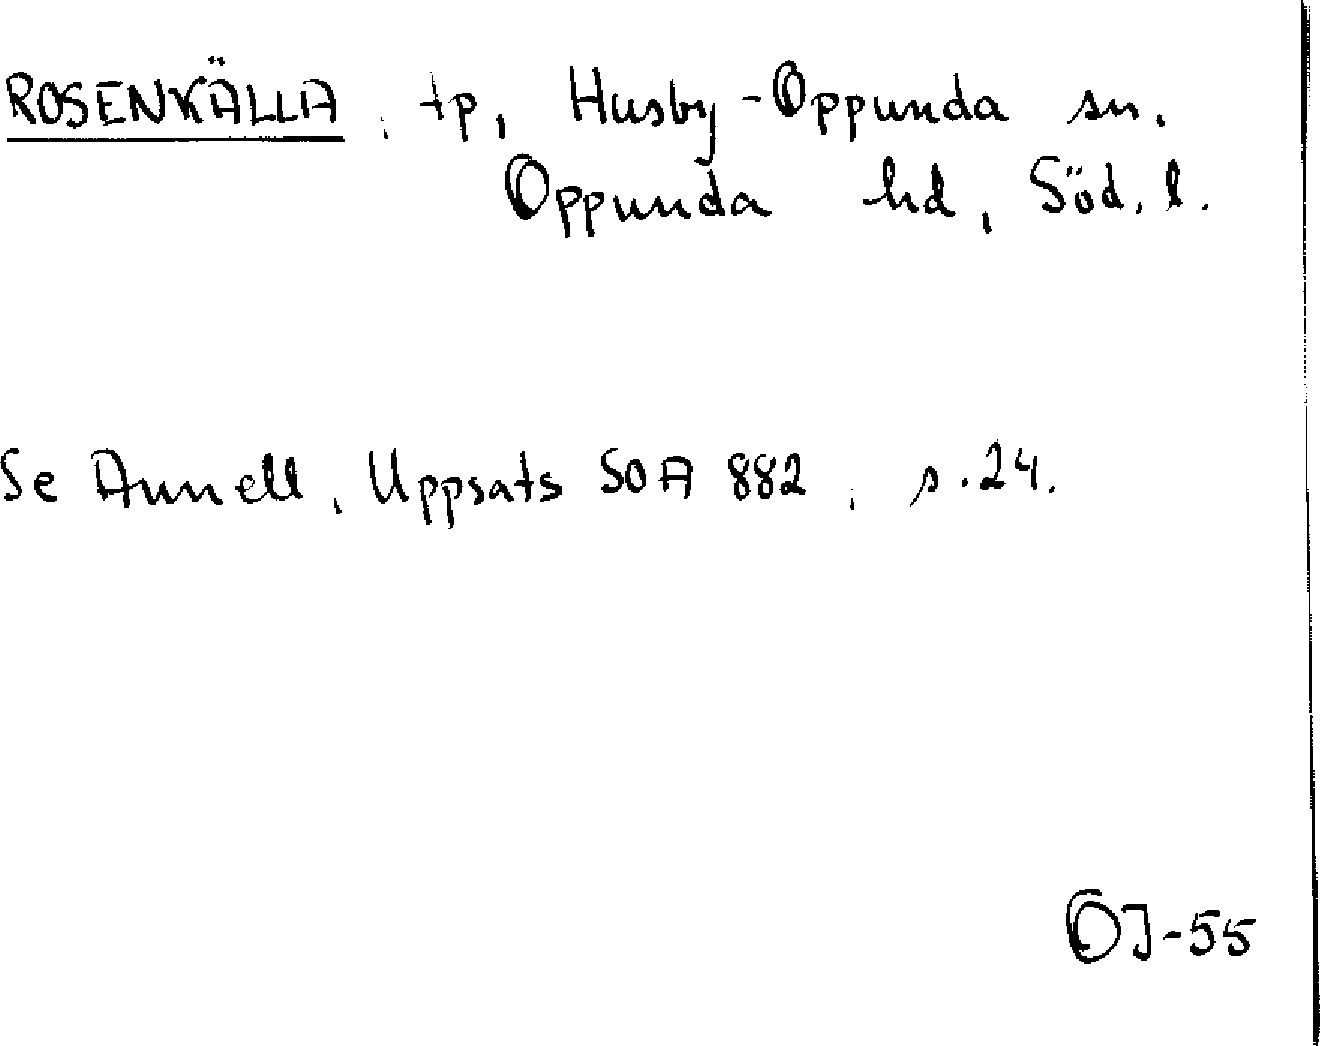 ROSENKÄLLA, tp, Husby-Oppunda sn.
Oppunda hd, Söd. l.
Se Annell, Uppsats SOA 882, s. 24.
OJ-55